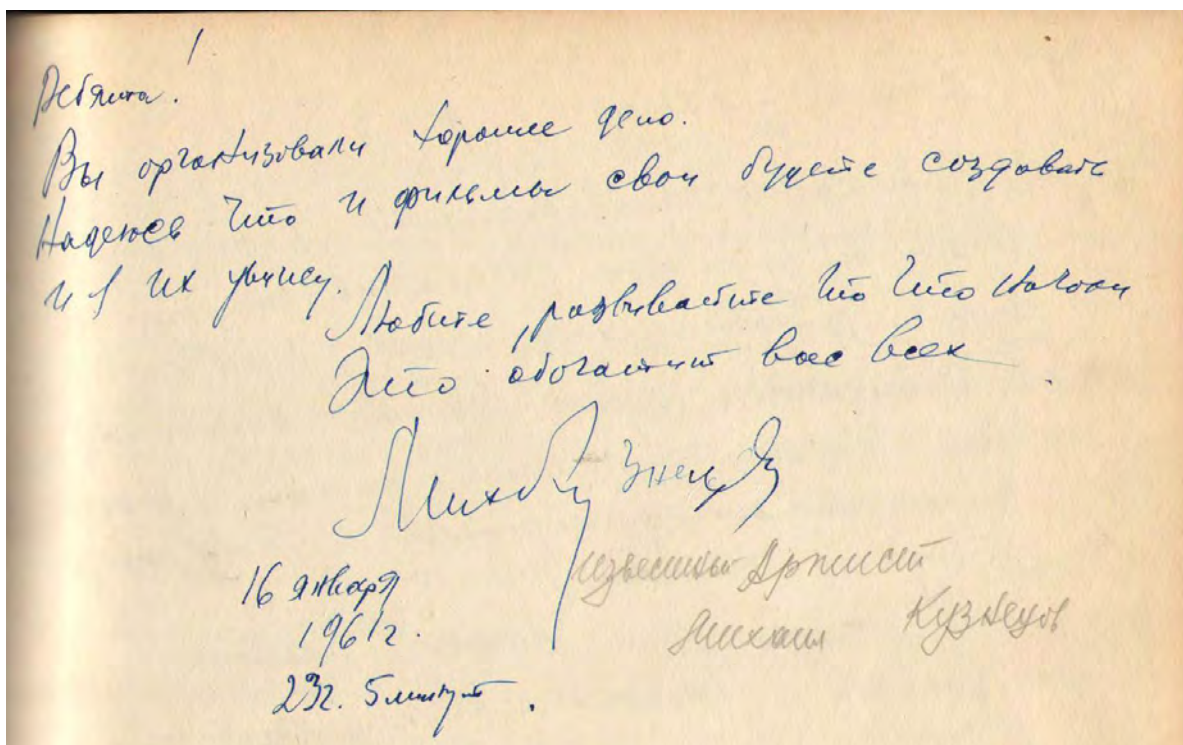 Ребята!
Вы организовали хорошее дело.
Надеюсь что и фильмы свои будете создавать
и я их увижу.
Любите, развивайте то что начали
Это обогатит вас всех.
Мих Кузнецов
16 января
1961г.
23г. 5 минут.
известный Артист
Михаил Кузнецов